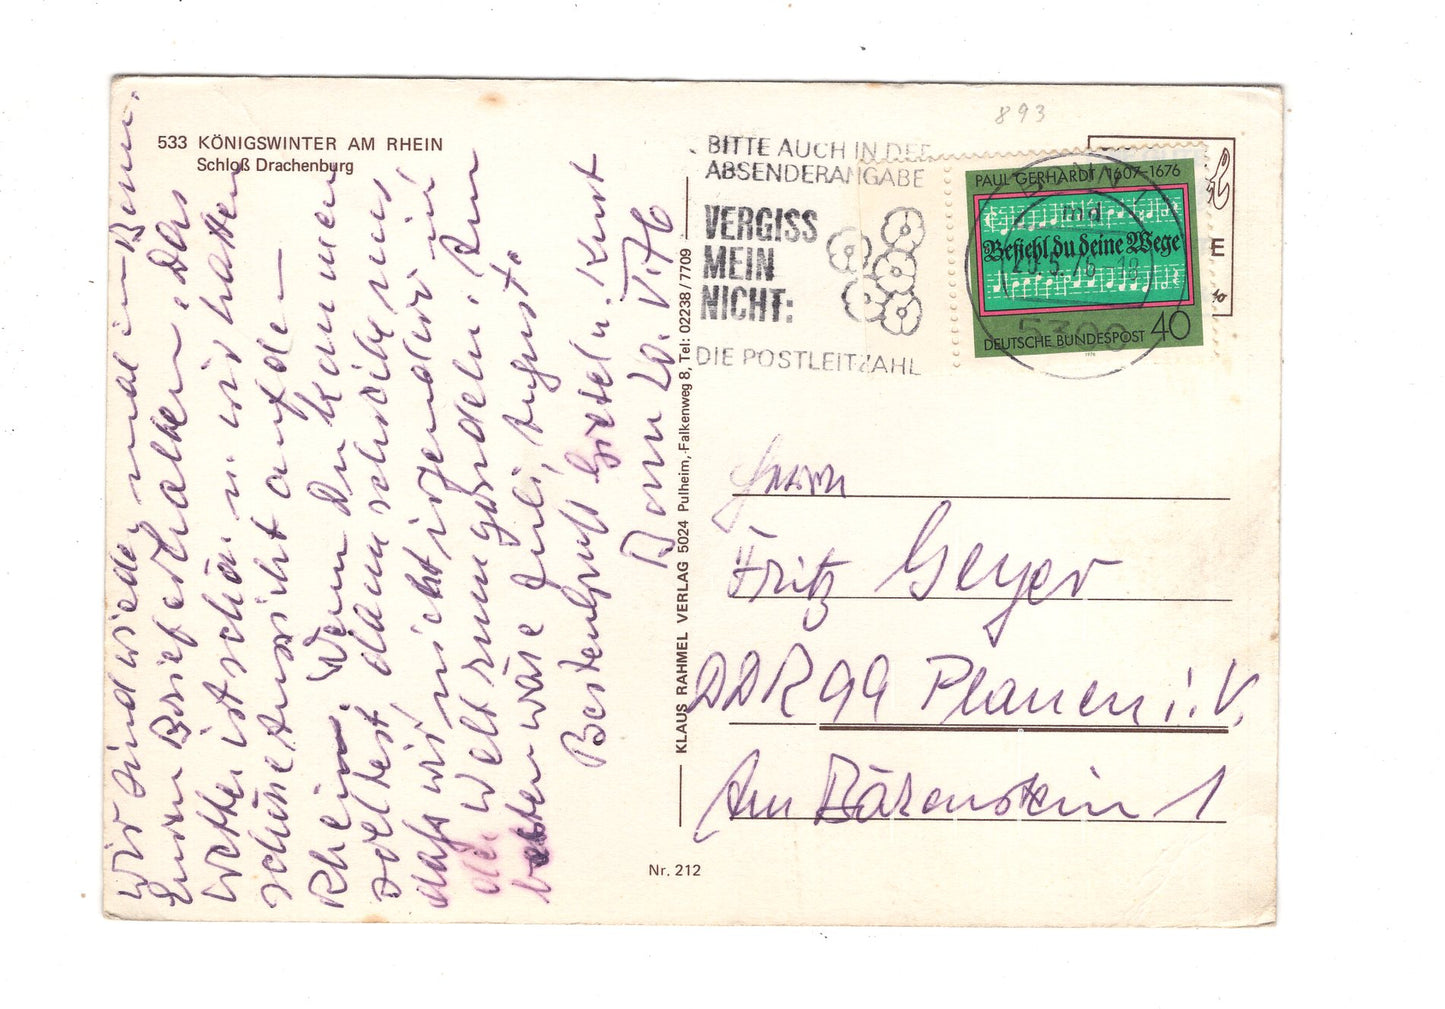 533 KÖNIGSWINTER AM RHEIN
Schloß Drachenburg
Wir sind wieder mal in Bonn.
Euren Brief erhalten. Das
Wetter ist schön u. wir hatten
schöne Aussicht auf den
Rhein. Wenn Du kommen
solltest, dann schreib uns
daß wir nicht irgendwo in
der Welt rumgondeln. Am
besten wäre Juli, August.
Besten Gruß Gretel u. Kurt
Bonn 20. V. 76
KLAUS RAHMEL VERLAG 5024 Pulheim, Falkenweg 8, Tel: 02238/7709
Nr. 212
893
BITTE AUCH IN DER
ABSENDERANGABE
VERGISS
MEIN
NICHT:
DIE POSTLEITZAHL
PAUL GERHARDT 1607–1676
Befiehl du deine Wege
DEUTSCHE BUNDESPOST 40
1976
20.5.76 18
5300
E
Herrn
Fritz Geyer
DDR 99 Plauen i. V.
Am Bärenstein 1